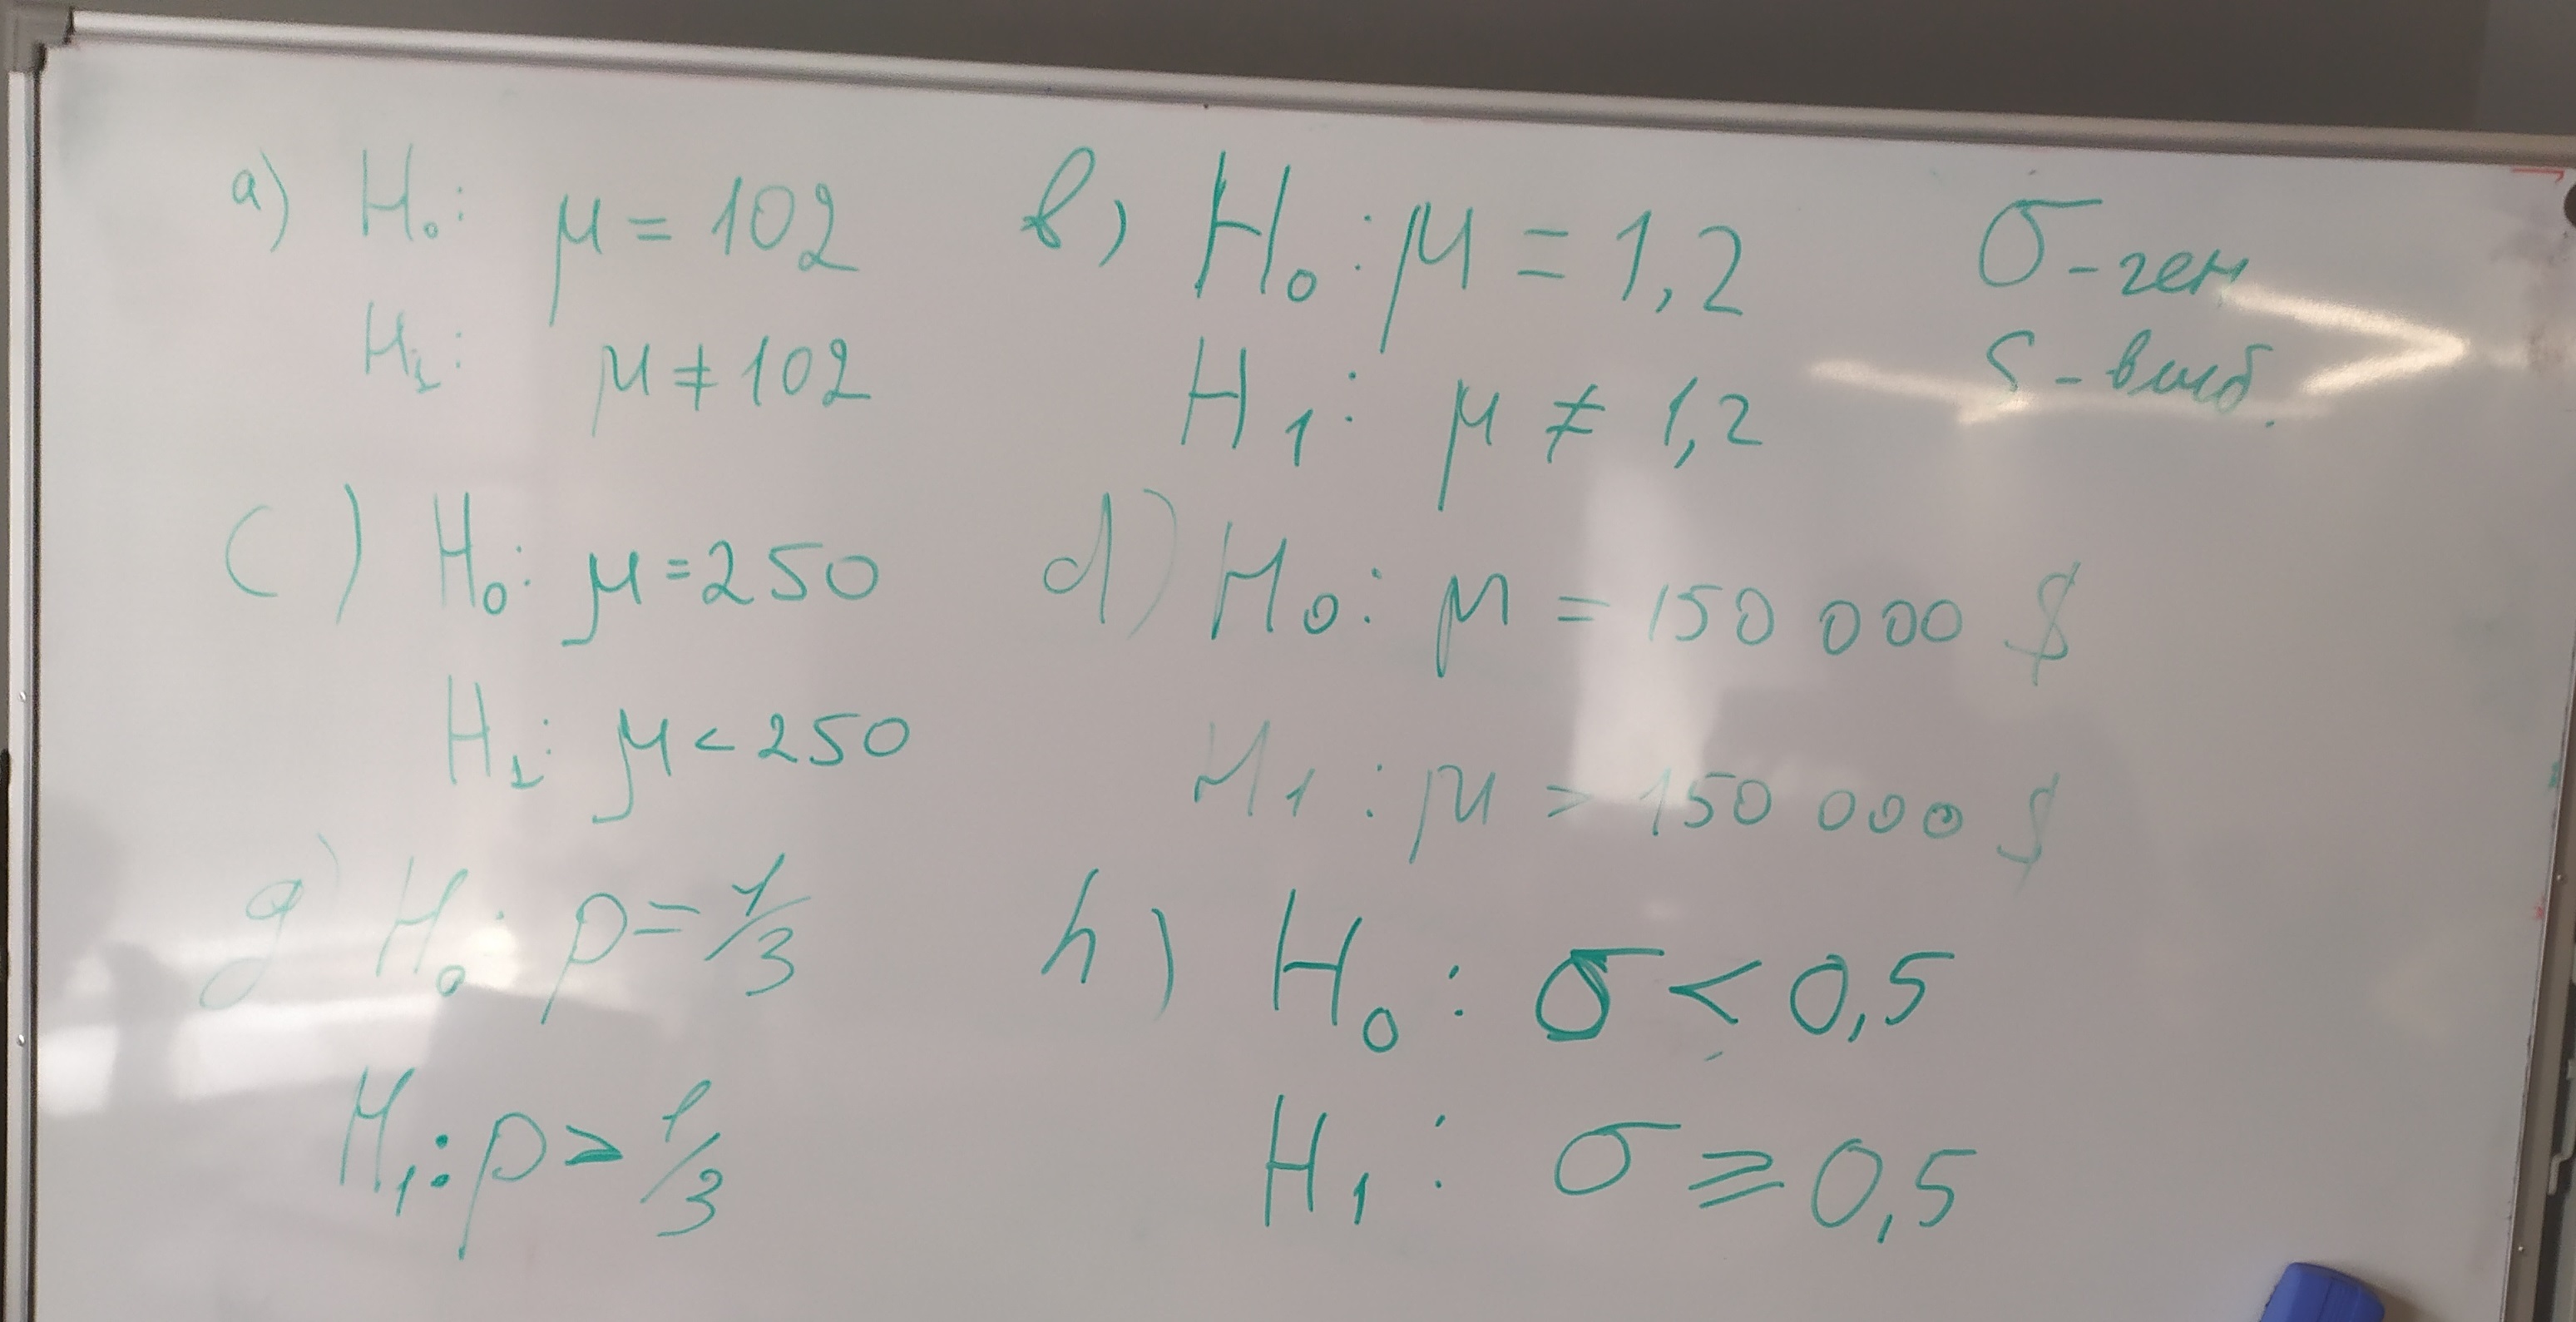 a) H₀: μ = 102
H₁: μ ≠ 102
b) H₀: μ = 1,2
H₁: μ ≠ 1,2
σ - ген
S - выб.
c) H₀: μ = 250
H₁: μ < 250
d) H₀: μ = 150 000 $
H₁: μ > 150 000 $
g) H₀: p = 1/3
H₁: p > 1/3
h) H₀: σ < 0,5
H₁: σ ⩾ 0,5